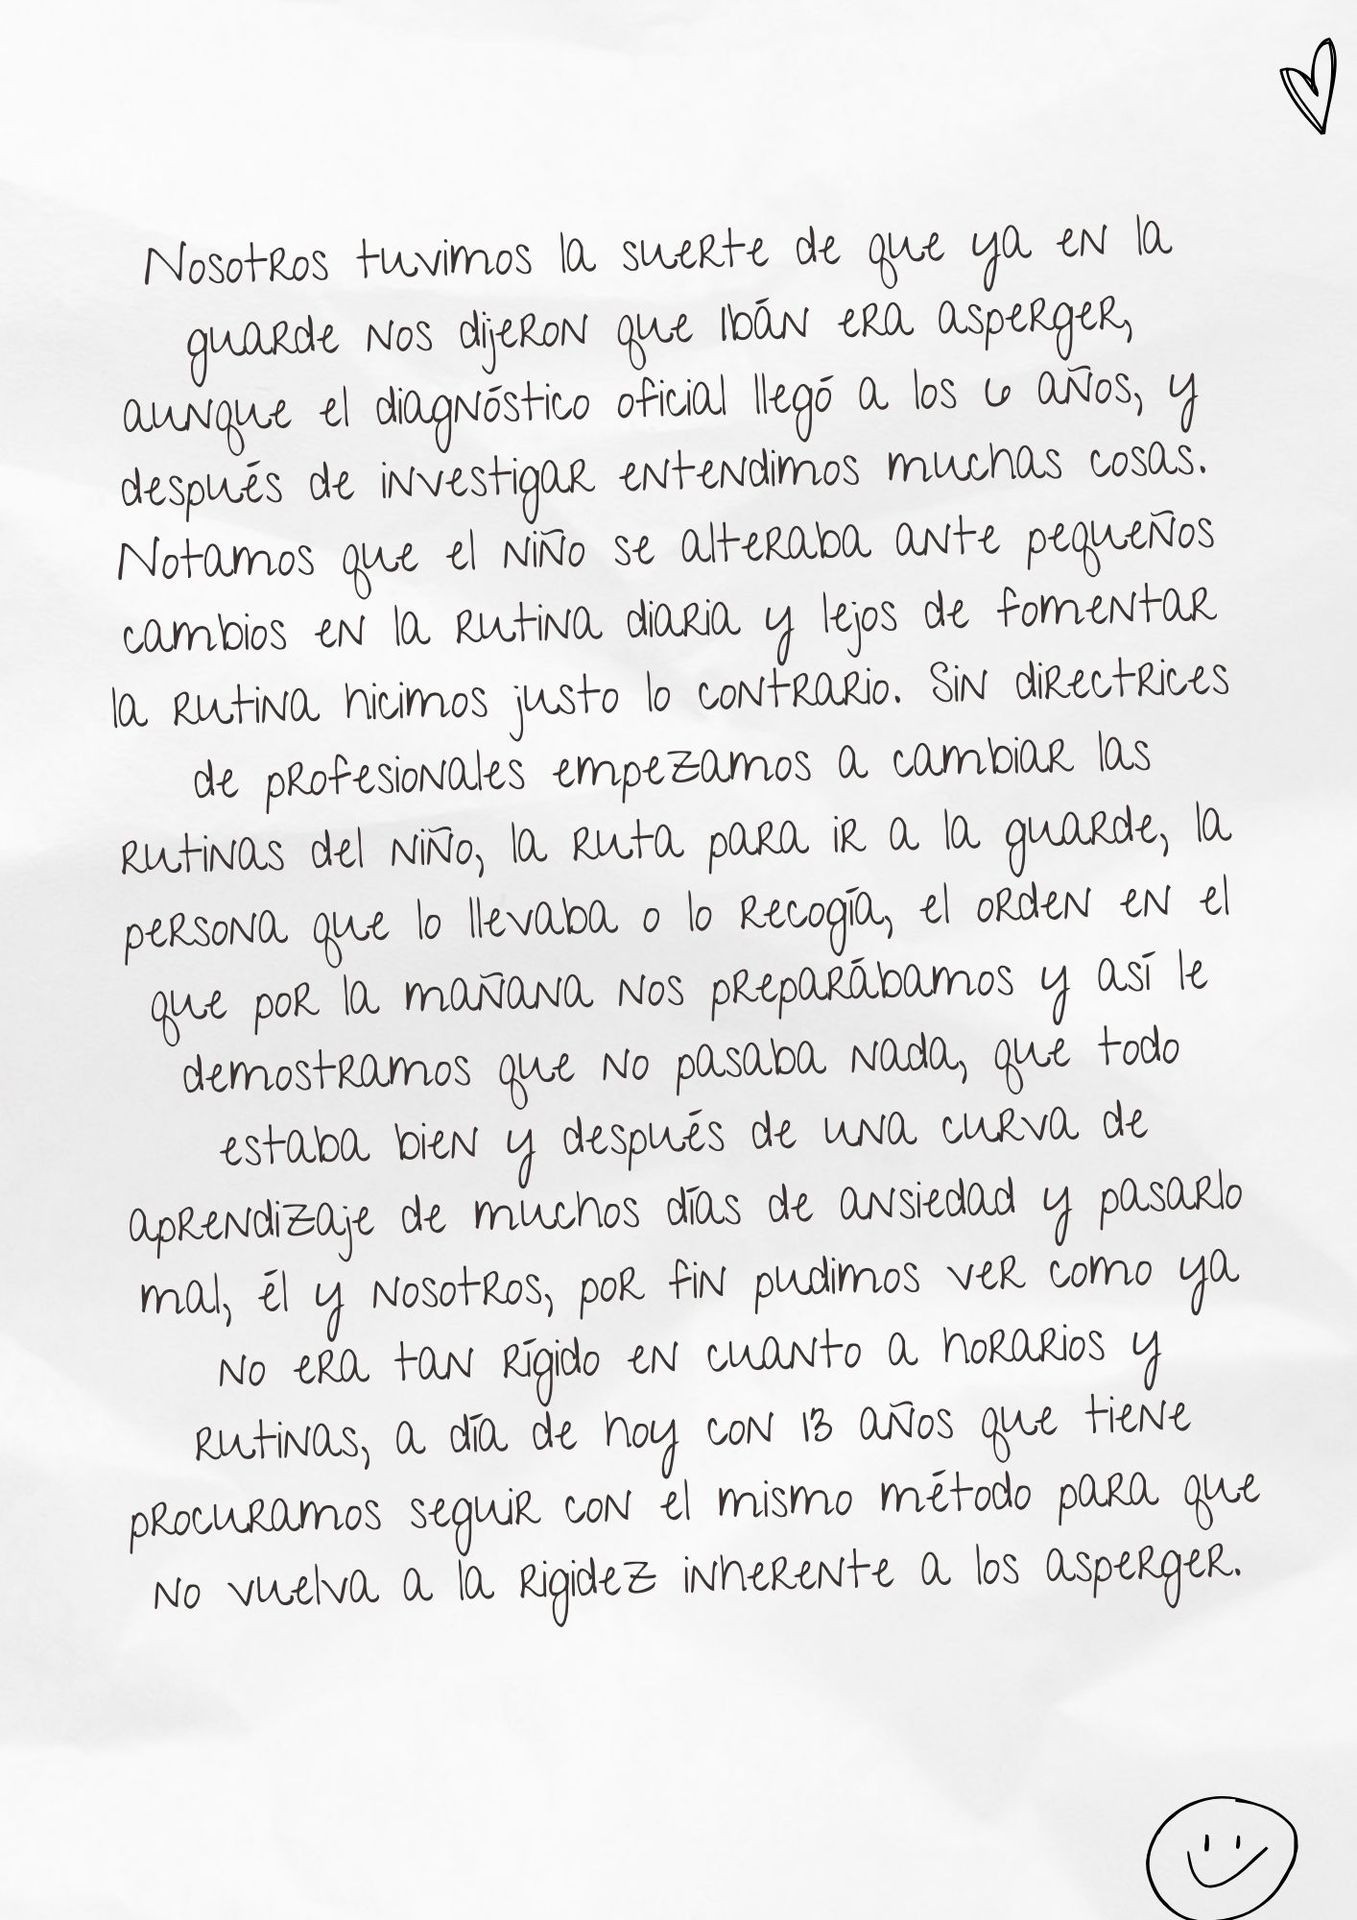 Nosotros tuvimos la suerte de que ya en la
guarde nos dijeron que Ibán era asperger,
aunque el diagnóstico oficial llegó a los 6 años, y
después de investigar entendimos muchas cosas.
Notamos que el niño se alteraba ante pequeños
cambios en la rutina diaria y lejos de fomentar
la rutina hicimos justo lo contrario. Sin directrices
de profesionales empezamos a cambiar las
rutinas del niño, la ruta para ir a la guarde, la
persona que lo llevaba o lo recogía, el orden en el
que por la mañana nos preparábamos y así le
demostramos que no pasaba nada, que todo
estaba bien y después de una curva de
aprendizaje de muchos días de ansiedad y pasarlo
mal, él y nosotros, por fin pudimos ver como ya
no era tan rígido en cuanto a horarios y
rutinas, a día de hoy con 13 años que tiene
procuramos seguir con el mismo método para que
no vuelva a la rigidez inherente a los asperger.